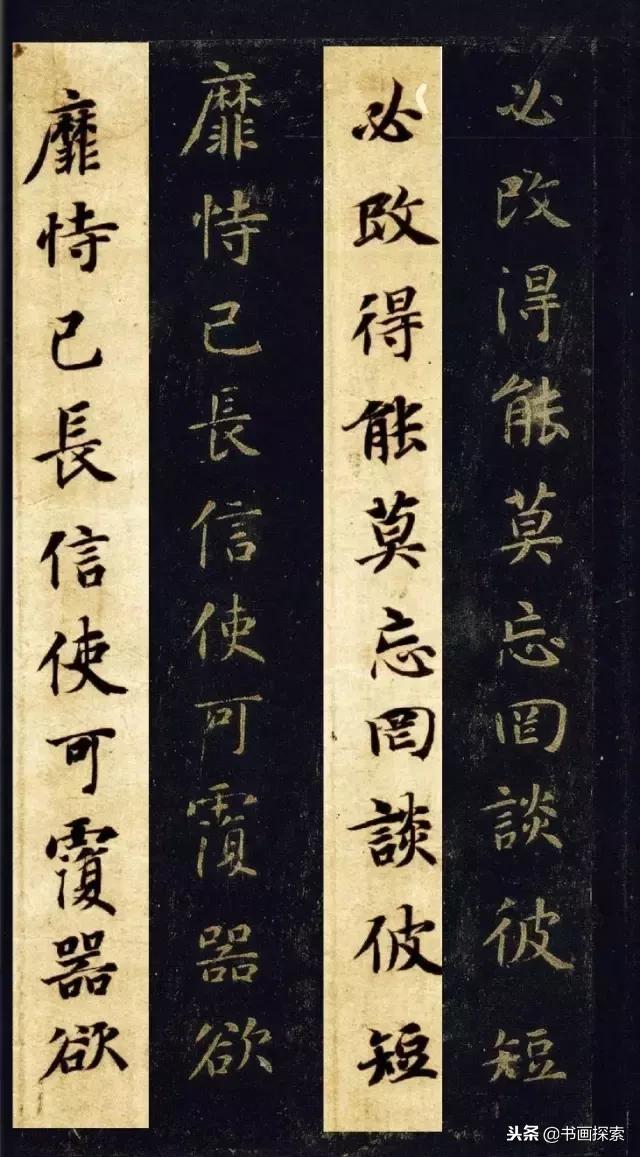 必改得能莫忘罔談彼短
必改得能莫忘罔談彼短
靡恃己長信使可覆器欲
靡恃己長信使可覆器欲
头条@书画探索